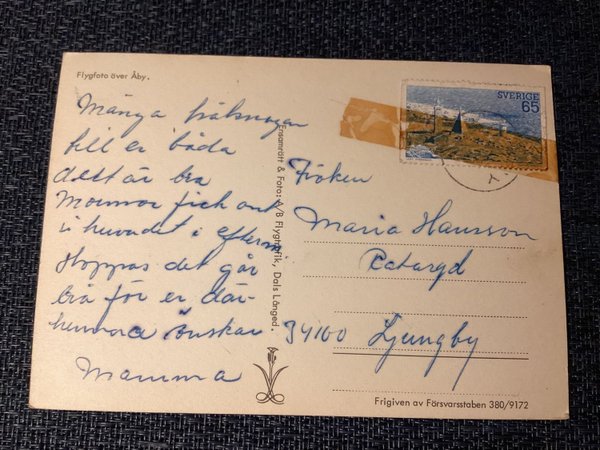 Flygfoto över Åby.
SVERIGE
65
Många hälsningar
till er båda
det är bra
Mormor fick ont
i huvudet i efterm
Hoppas det går
bra för er där-
hemma önskar
Mamma
Ensamrätt & Foto: A/B Flygtrafik, Dals Långed.
Fröken
Maria Hansson
34100 Ljungby
Frigiven av Försvarsstaben 380/9172